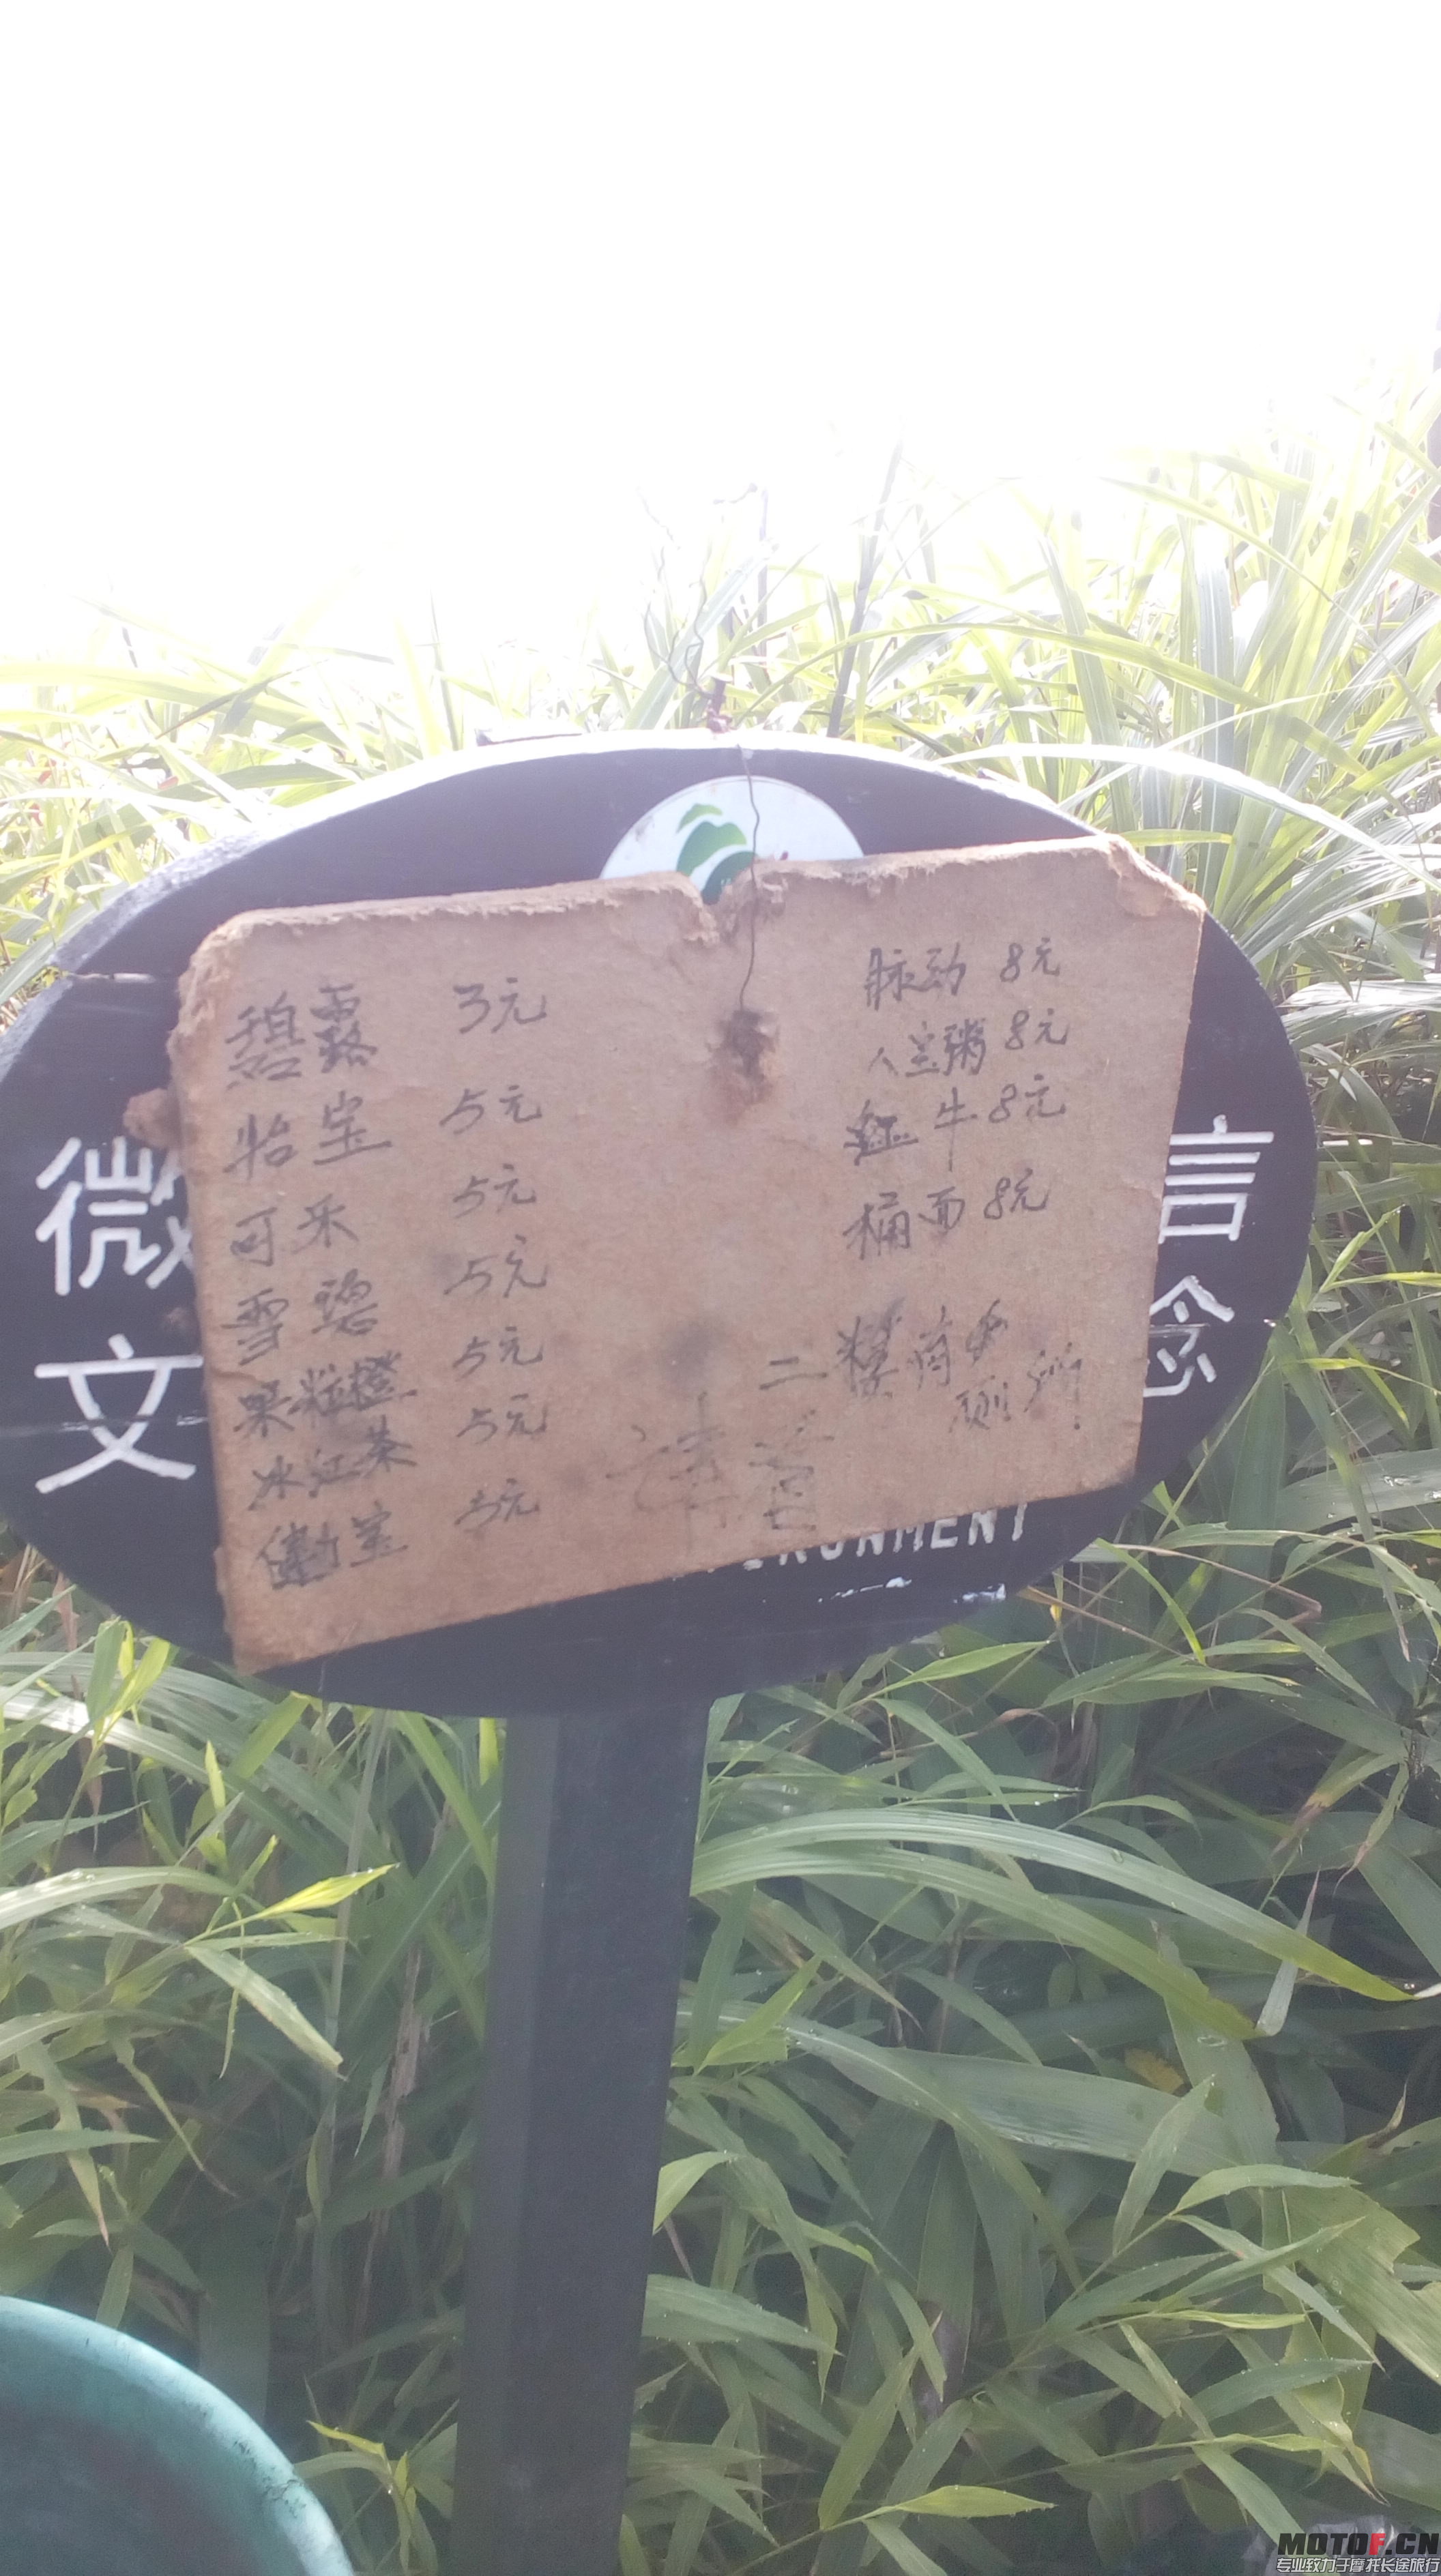 碧露 3元
怡宝 5元
可乐 5元
雪碧 5元
果粒橙 5元
冰江茶 5元
健力宝 5元
脉动 8元
八宝粥 8元
红牛 8元
桶面 8元
二楼有
厕所
请
微
文
言
念
RONMENT
MOTOF.CN
专业致力于摩托长途旅行